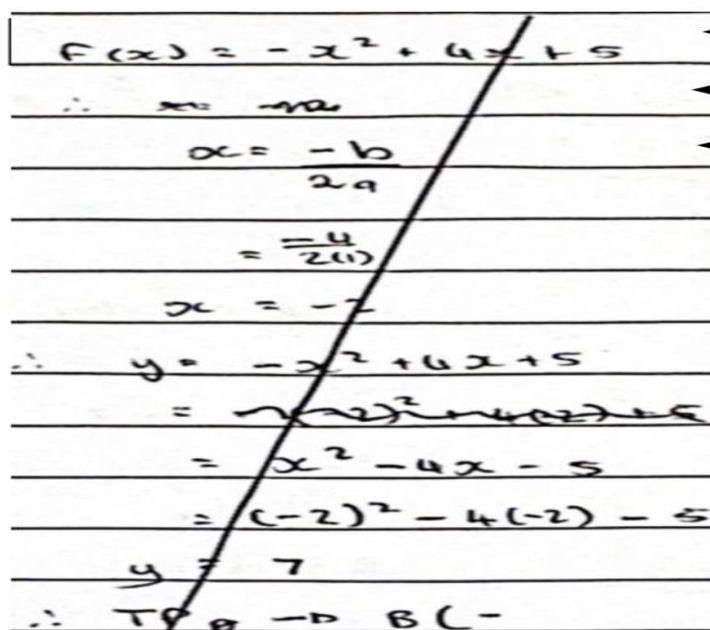 F(x) = -x² + 4x + 5
∴
x = -b / 2a
= -4 / 2(1)
x = -2
∴ y = -x² + 4x + 5
= -(-2)² + 4(-2) + 5
= x² - 4x - 5
= (-2)² - 4(-2) - 5
y = 7
∴ TP B (-